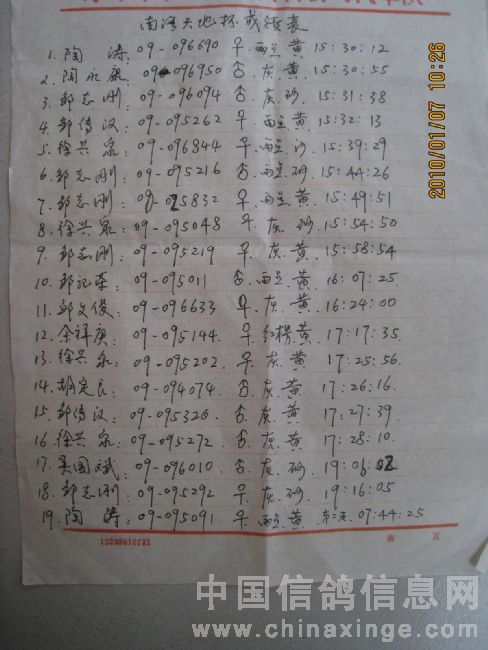 南 天地杯成绩表
1. 陶 涛: 09-096690 ♀. 雨点 黄 15:30:12
2. 陶永康: 09-096950 ♂. 灰 黄. 15:30:55
3. 邹志刚: 09-096094 ♂. 灰 砂. 15:31:38
4. 邹传汉: 09-095262 ♀. 雨点 黄 15:32:13
5. 徐兴泉: 09-096844 ♀. 雨点 沙. 15:39:29
6. 邹志刚: 09-095216 ♂. 雨点. 砂. 15:44:26
7. 邹志刚: 09-025832 ♀. 雨点. 黄 15:49:51
8. 徐兴泉: 09-095048 ♀. 灰 砂. 15:54:50
9. 邹志刚: 09-095219 ♀. 灰 黄. 15:58:54
10. 邹 : 09-095011 ♂. 雨点. 黄. 16:07:25
11. 邹文俊: 09-096633 ♀. 灰. 黄. 16:24:00
12. 余祥庚: 09-095144. ♀. 红楞. 黄. 17:17:35
13. 徐兴泉: 09-095202. ♀. 灰 黄. 17:25:56.
14. 胡定良: 09-094074 ♂. 灰 黄. 17:26:16.
15. 邹传汉: 09-095326 ♂. 灰. 黄. 17:27:39
16. 徐兴泉: 09-095272 ♂. 灰. 黄. 17:28:10.
17. 吴国斌: 09-096010 ♂. 灰. 砂. 19:06:02
18. 邹志刚: 09-095292 ♀. 灰. 砂. 19:16:05
19. 陶 涛: 09-095091 ♀. 雨点. 黄. 第二天. 07:44:25
13262610721 第 页
2010/01/07 10:26
中国信鸽信息网
www.chinaxinge.com